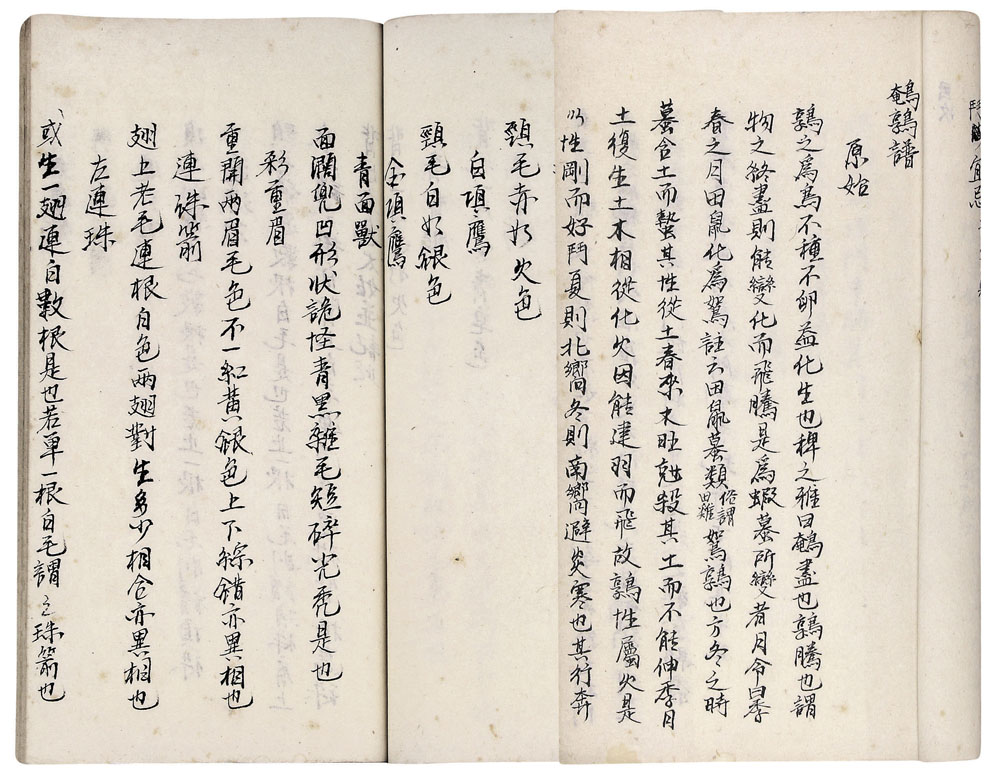 鵪鶉譜
原始
鶉之為鳥不種不卵益化生也稗之雅曰鵪盡也鶉騰也謂
物之終盡則能變化而飛騰是為蝦蟇所變者月令曰季
春之月田鼠化為鴽註云田鼠蟇類俗謂田雞鴽鶉也方冬之時
蟇含土而蟄其性從土春來木旺尅殺其土而不能伸季月
土復生土木相從化火因能建羽而飛故鶉性屬火是
以性剛而好鬥夏則北嚮冬則南嚮避炎寒也其行奔
頸毛赤如火色
白項鷹
頸毛白如銀色
金項鷹
青面獸
面濶兜凹形狀詭怪青黑雜毛短碎光禿是也
彩重眉
重開兩眉毛色不一紅黃銀色上下綜錯亦異相也
連珠箭
翅上老毛連根白色兩翅對生多少相合亦異相也
左連珠
或生一翅連白數根是也若單一根白毛謂之珠箭也